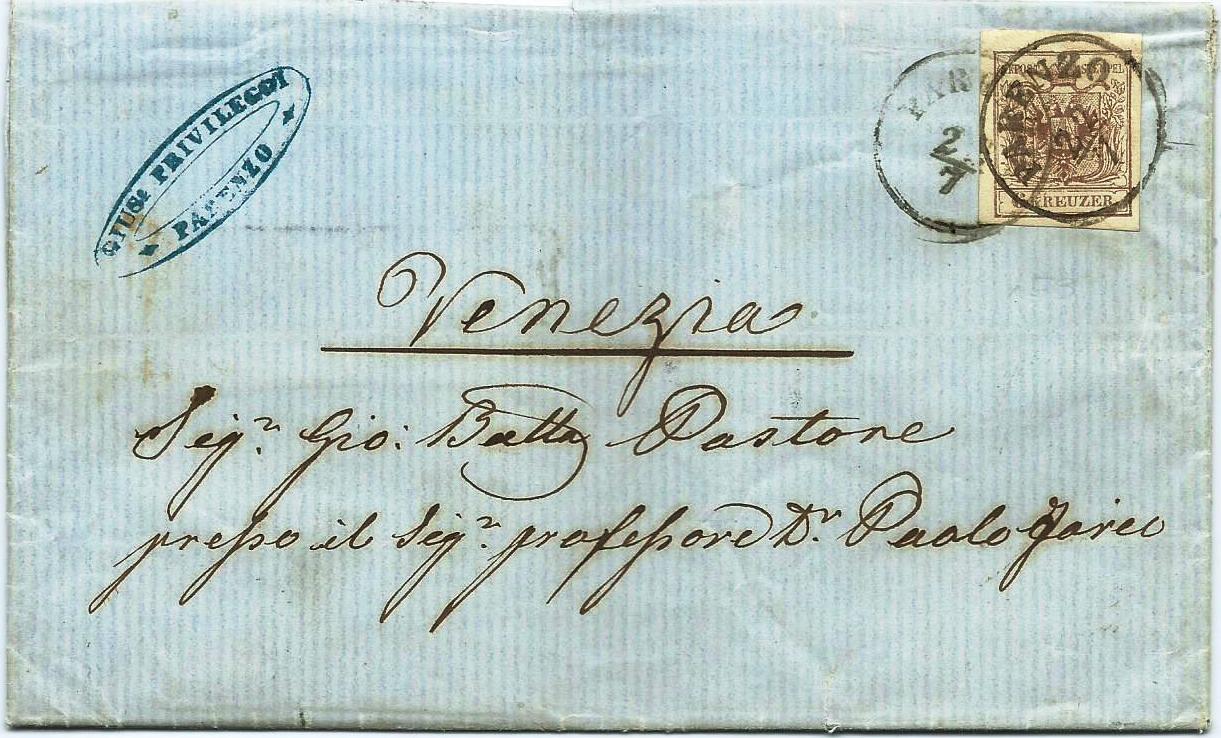 GIUSe PRIVILEGGI
PARENZO
PARENZO
2/7
PARENZO
2/7
6 KREUZER
Venezia
Sigr. Gio: Batta Pastore
presso il Sigr. professore Dr. Paolo